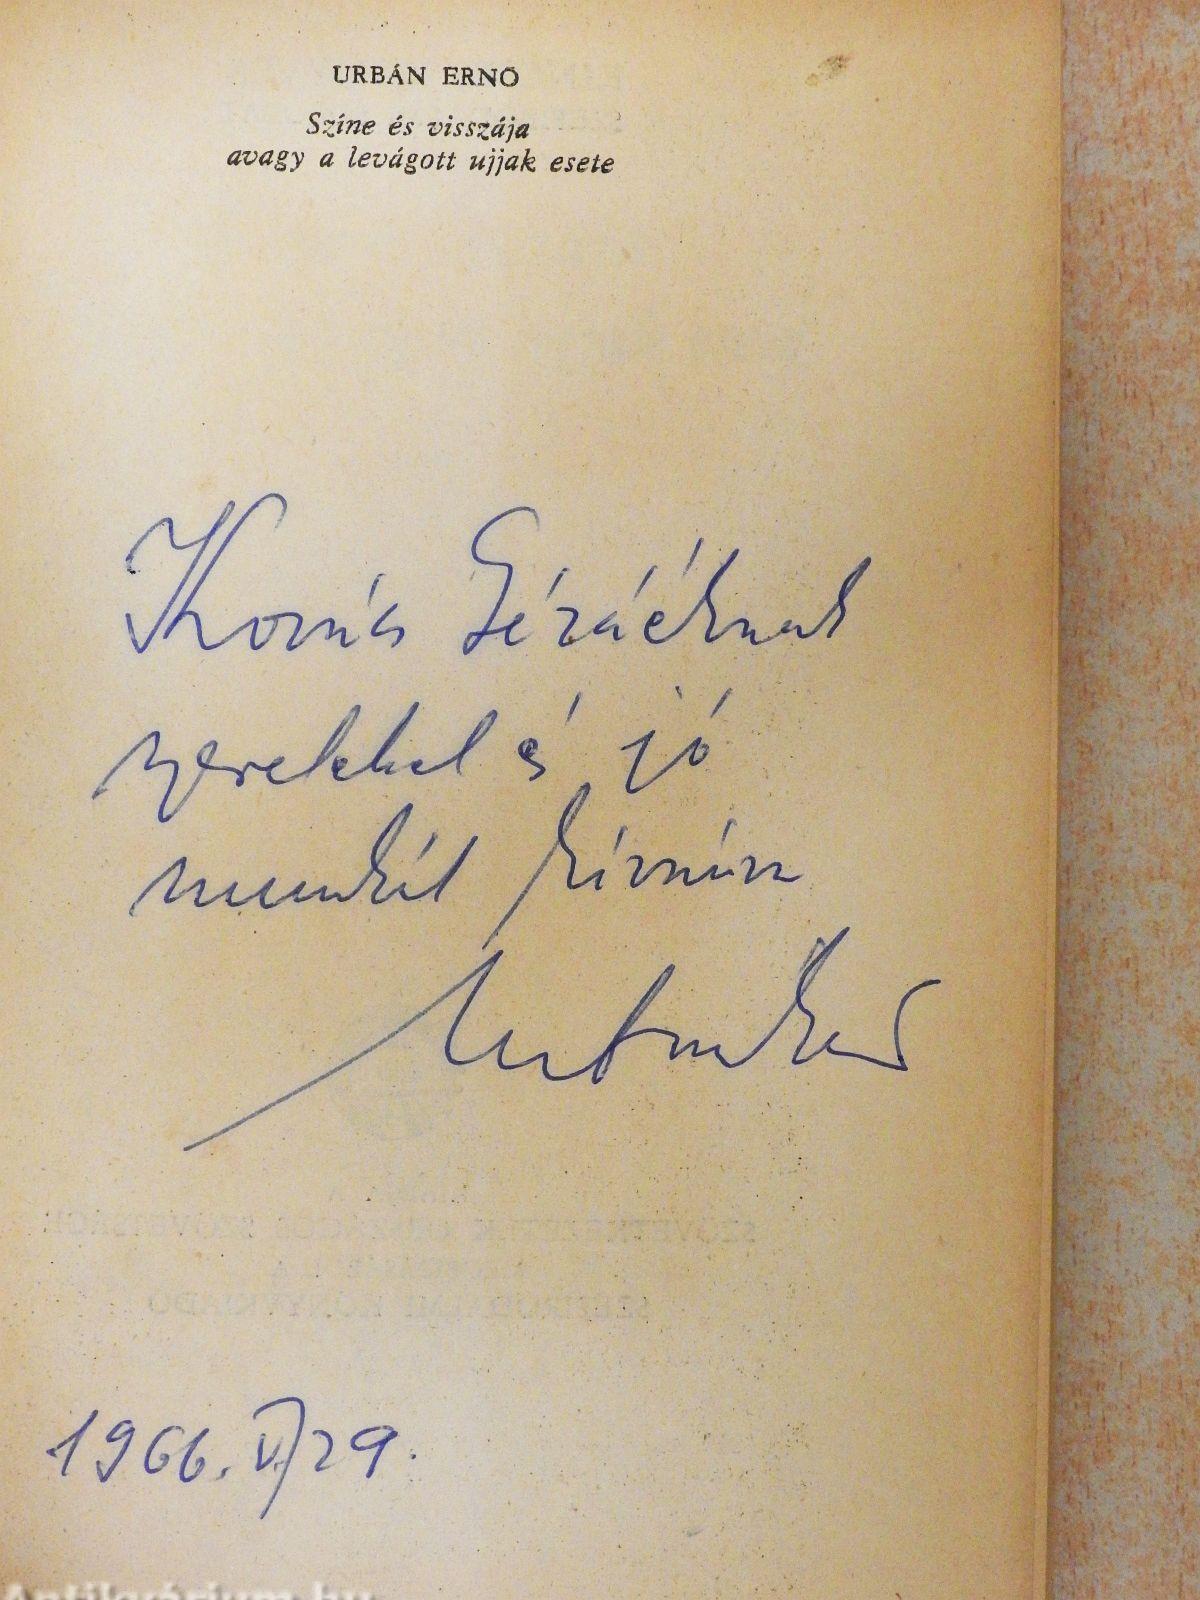 URBÁN ERNŐ
Színe és visszája
avagy a levágott ujjak esete
Kovács Gézáéknak
szeretettel és jó
munkát kívánva
Urbán Ernő
1966. V/29.
Antikvárium.hu